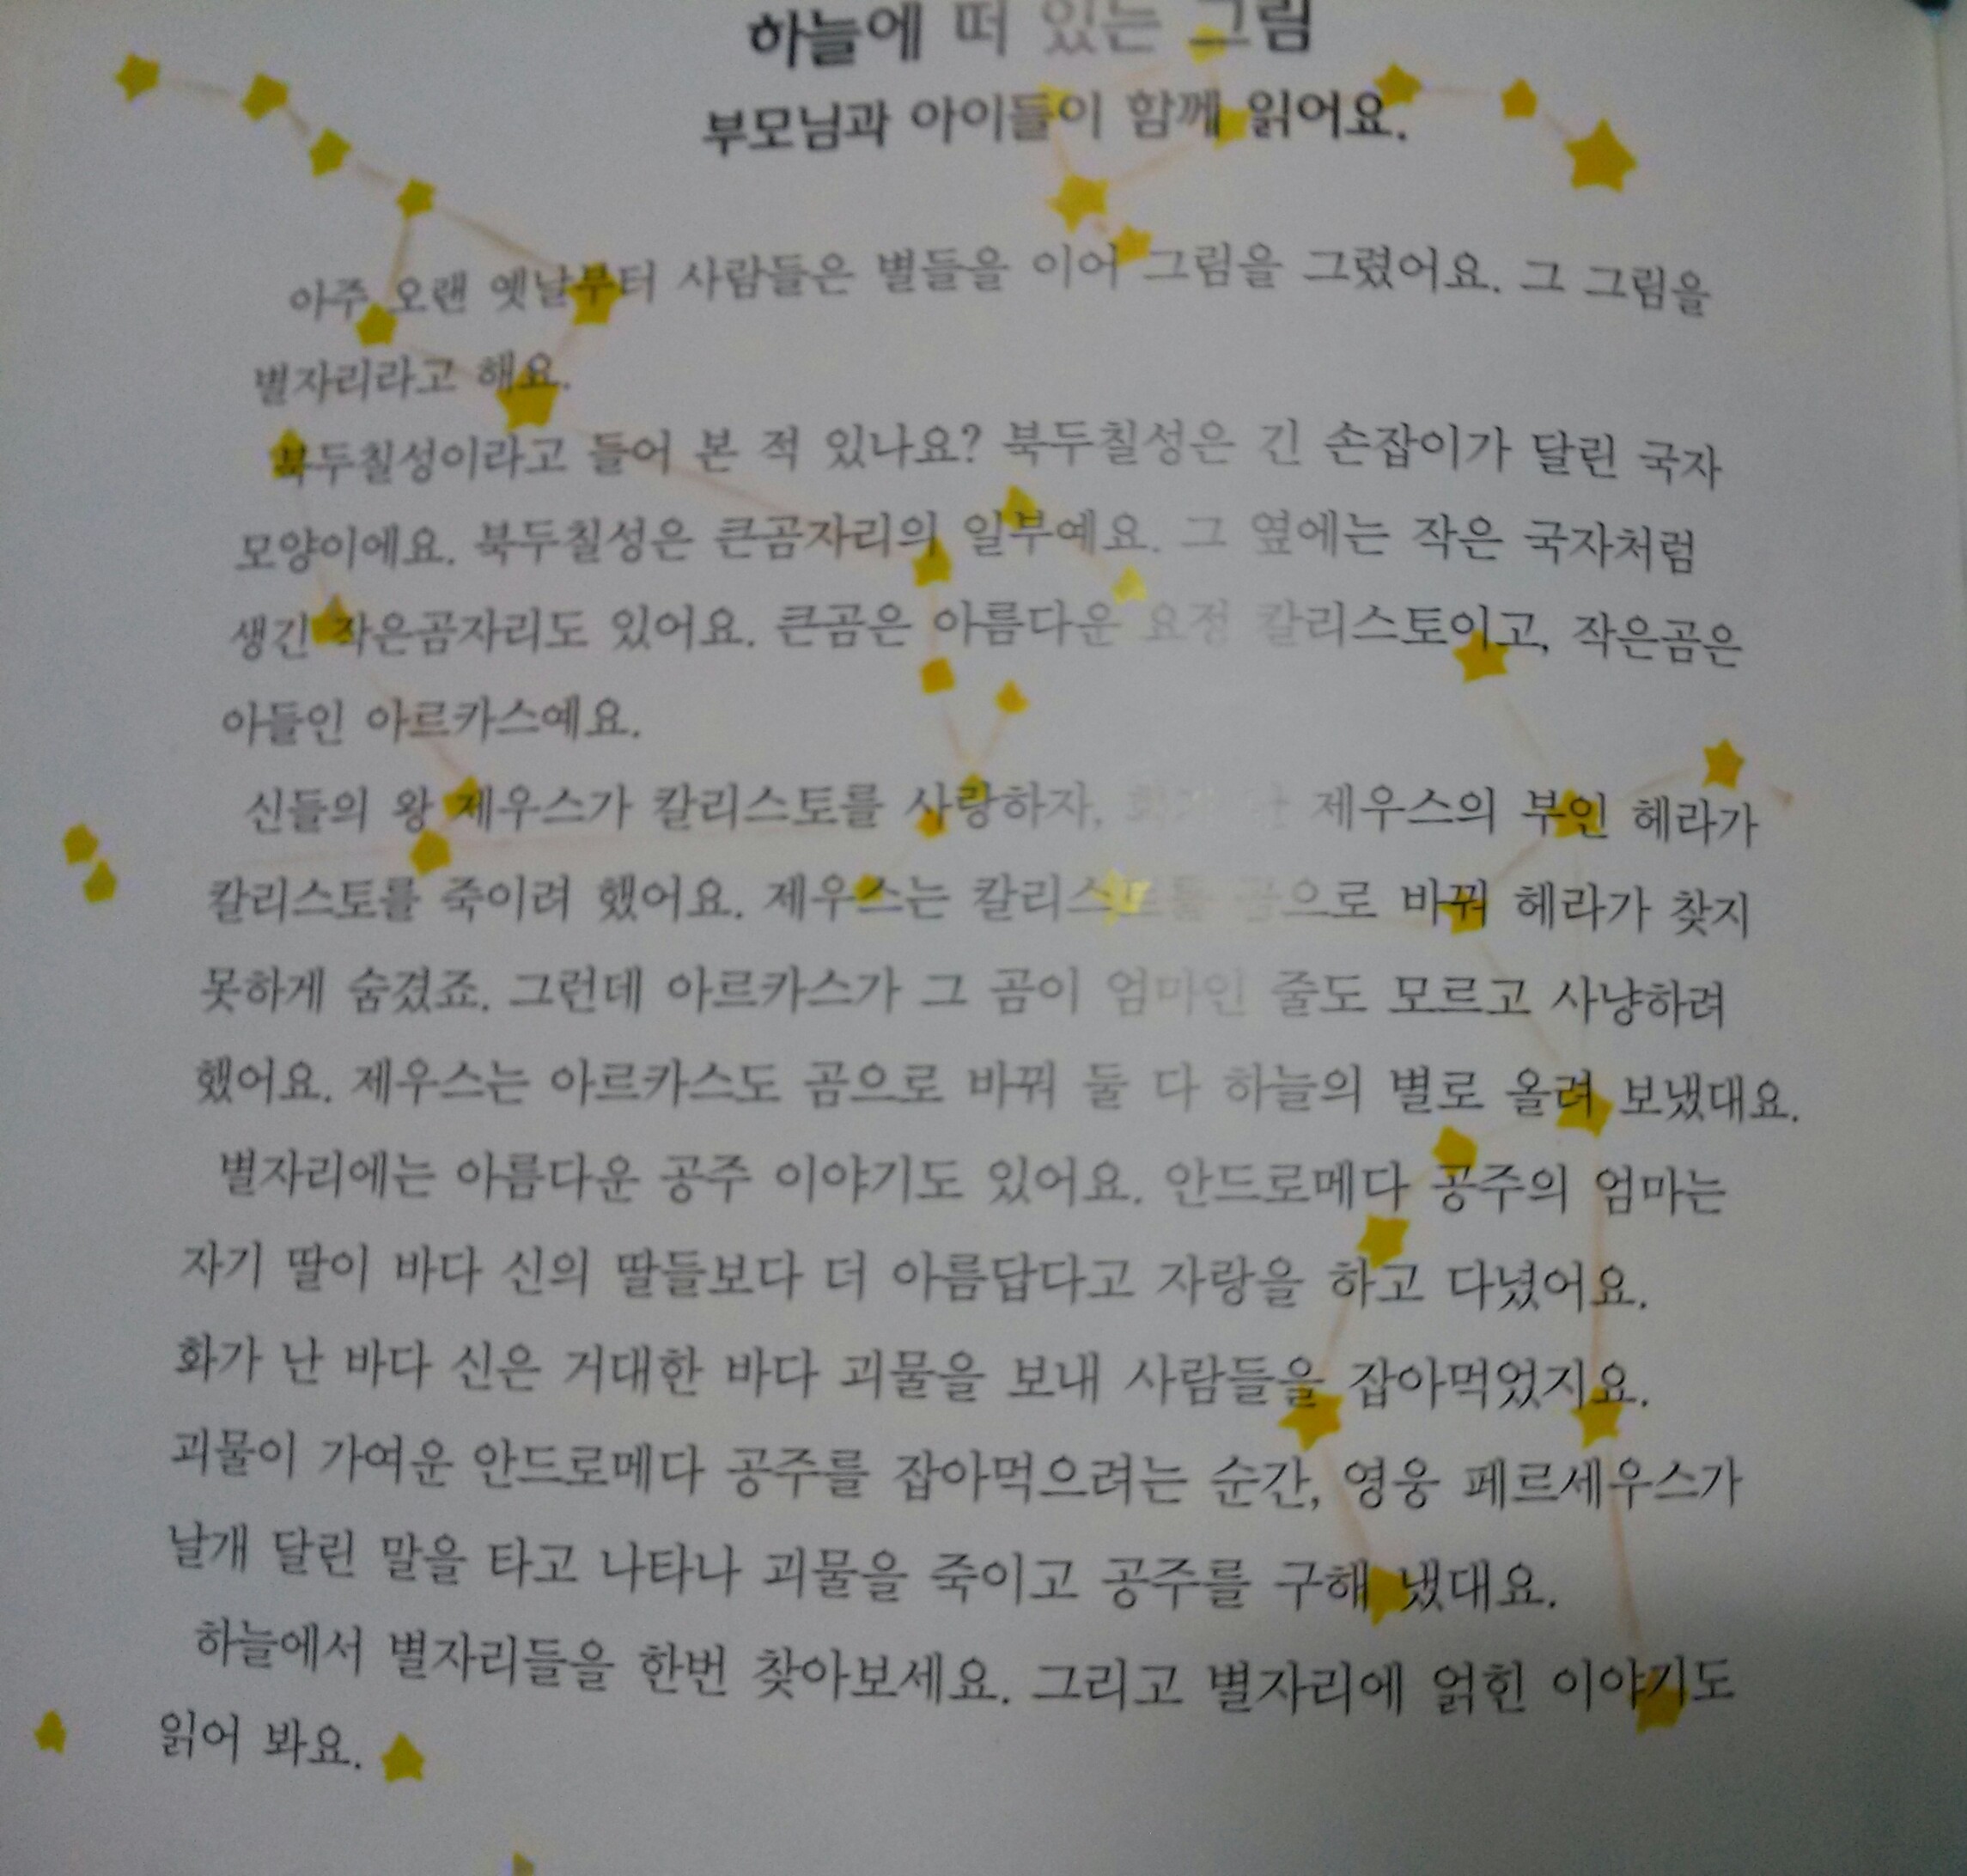 하늘에 떠 있는 그림
부모님과 아이들이 함께 읽어요.
아주 오랜 옛날부터 사람들은 별들을 이어 그림을 그렸어요. 그 그림을
별자리라고 해요.
북두칠성이라고 들어 본 적 있나요? 북두칠성은 긴 손잡이가 달린 국자
모양이에요. 북두칠성은 큰곰자리의 일부예요. 그 옆에는 작은 국자처럼
생긴 작은곰자리도 있어요. 큰곰은 아름다운 요정 칼리스토이고, 작은곰은
아들인 아르카스예요.
신들의 왕 제우스가 칼리스토를 사랑하자, 제우스의 부인 헤라가
칼리스토를 죽이려 했어요. 제우스는 칼리스토를 곰으로 바꿔 헤라가 찾지
못하게 숨겼죠. 그런데 아르카스가 그 곰이 엄마인 줄도 모르고 사냥하려
했어요. 제우스는 아르카스도 곰으로 바꿔 둘 다 하늘의 별로 올려 보냈대요.
별자리에는 아름다운 공주 이야기도 있어요. 안드로메다 공주의 엄마는
자기 딸이 바다 신의 딸들보다 더 아름답다고 자랑을 하고 다녔어요.
화가 난 바다 신은 거대한 바다 괴물을 보내 사람들을 잡아먹었지요.
괴물이 가여운 안드로메다 공주를 잡아먹으려는 순간, 영웅 페르세우스가
날개 달린 말을 타고 나타나 괴물을 죽이고 공주를 구해 냈대요.
하늘에서 별자리들을 한번 찾아보세요. 그리고 별자리에 얽힌 이야기도
읽어 봐요.